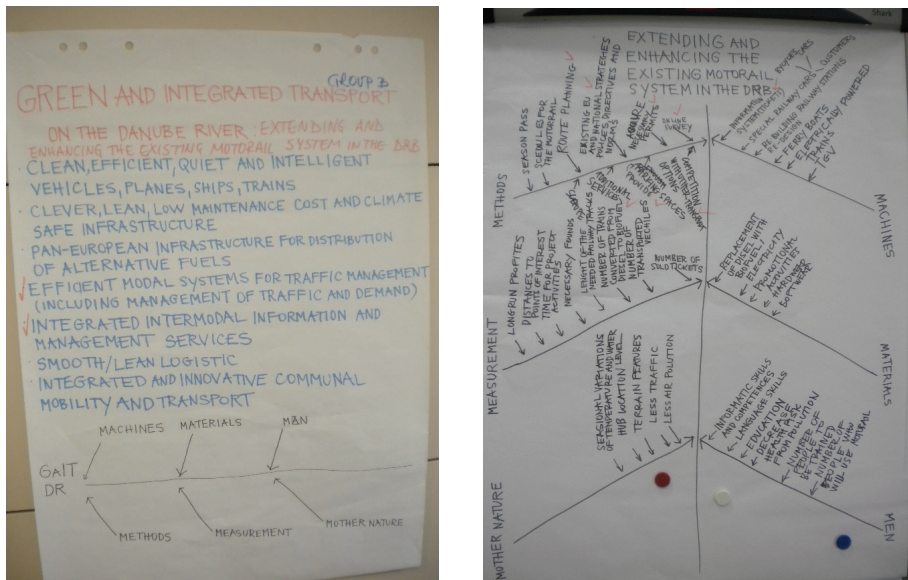 GROUP B
GREEN AND INTEGRATED TRANSPORT
ON THE DANUBE RIVER: EXTENDING AND
ENHANCING THE EXISTING MOTORAIL SYSTEM IN THE DRB
· CLEAN, EFFICIENT, QUIET AND INTELLIGENT
VEHICLES, PLANES, SHIPS, TRAINS
· CLEVER, LEAN, LOW MAINTENANCE COST AND CLIMATE
SAFE INFRASTRUCTURE
· PAN-EUROPEAN INFRASTRUCTURE FOR DISTRIBUTION
OF ALTERNATIVE FUELS
EFFICIENT MODAL SYSTEMS FOR TRAFFIC MANAGEMENT
(INCLUDING MANAGEMENT OF TRAFFIC AND DEMAND)
INTEGRATED INTERMODAL INFORMATION AND
MANAGEMENT SERVICES
· SMOOTH/LEAN LOGISTIC
· INTEGRATED AND INNOVATIVE COMMUNAL
MOBILITY AND TRANSPORT
MACHINES
MATERIALS
MAN
GaIT
DR
METHODS
MEASUREMENT
MOTHER NATURE
EXTENDING AND
ENHANCING THE
EXISTING MOTORAIL
SYSTEM IN THE DRB
METHODS
SEASON PASS
SCEDULES FOR
THE MOTORRAIL
ROUTE PLANNING
EXISTING EU
AND NATIONAL STRATEGIES
POLICIES, DIRECTIVES AND
NORMS
NECESSARY
PERMITS
ONLINE
SURVEY
ADDITIONAL
SERVICES
PROVIDE
PARKING
SPACES
COMPETITION
WITH OTHER
TRANSPORT
OPTIONS
MACHINES
SPECIAL RAILWAY CARS
RE-DESIGN
RAILWAY STATIONS
CUSTOMERS
FERRY BOATS
ELECTRICALLY POWERED
TRAINS
TGV
MEASUREMENT
LONGRUN PROFITES
DISTANCES TO
POINTS OF INTEREST
TIME FOR PROJECT
ACTIVITIES
NECESSARY FOUNDS
LENGHT OF THE
NEEDED RAILWAY TRACKS
NUMBER OF TRAINS
CONVERTED FROM
DIESEL TO BIOFUEL
NUMBER OF
TRANSPORTED
VECHILES
NUMBER OF
SOLD TICKETS
MATERIALS
REPLACEMENT
OF DIESEL WITH
BIOFUEL/
ELECTRICITY
PROMOTIONAL
ACTIVITIES
HARDWARE
SOFTWARE
MOTHER NATURE
SEASIONAL VARIATIONS
OF TEMPERATURE AND WATER
LEVEL
HUB LOCATION
TERRAIN FEATURES
LESS TRAFFIC
LESS AIR POLUTION
MEN
INFORMATIC SKILLS
AND COMPETENCES
LANGUAGE SKILLS
EDUCATION
DECREASE
HEALTH RISK
FROM POLLUTION
NUMBER OF
PEOPLE TO
BE TRAINED
NUMBER OF
PEOPLE WHO
WILL USE MOTORAIL